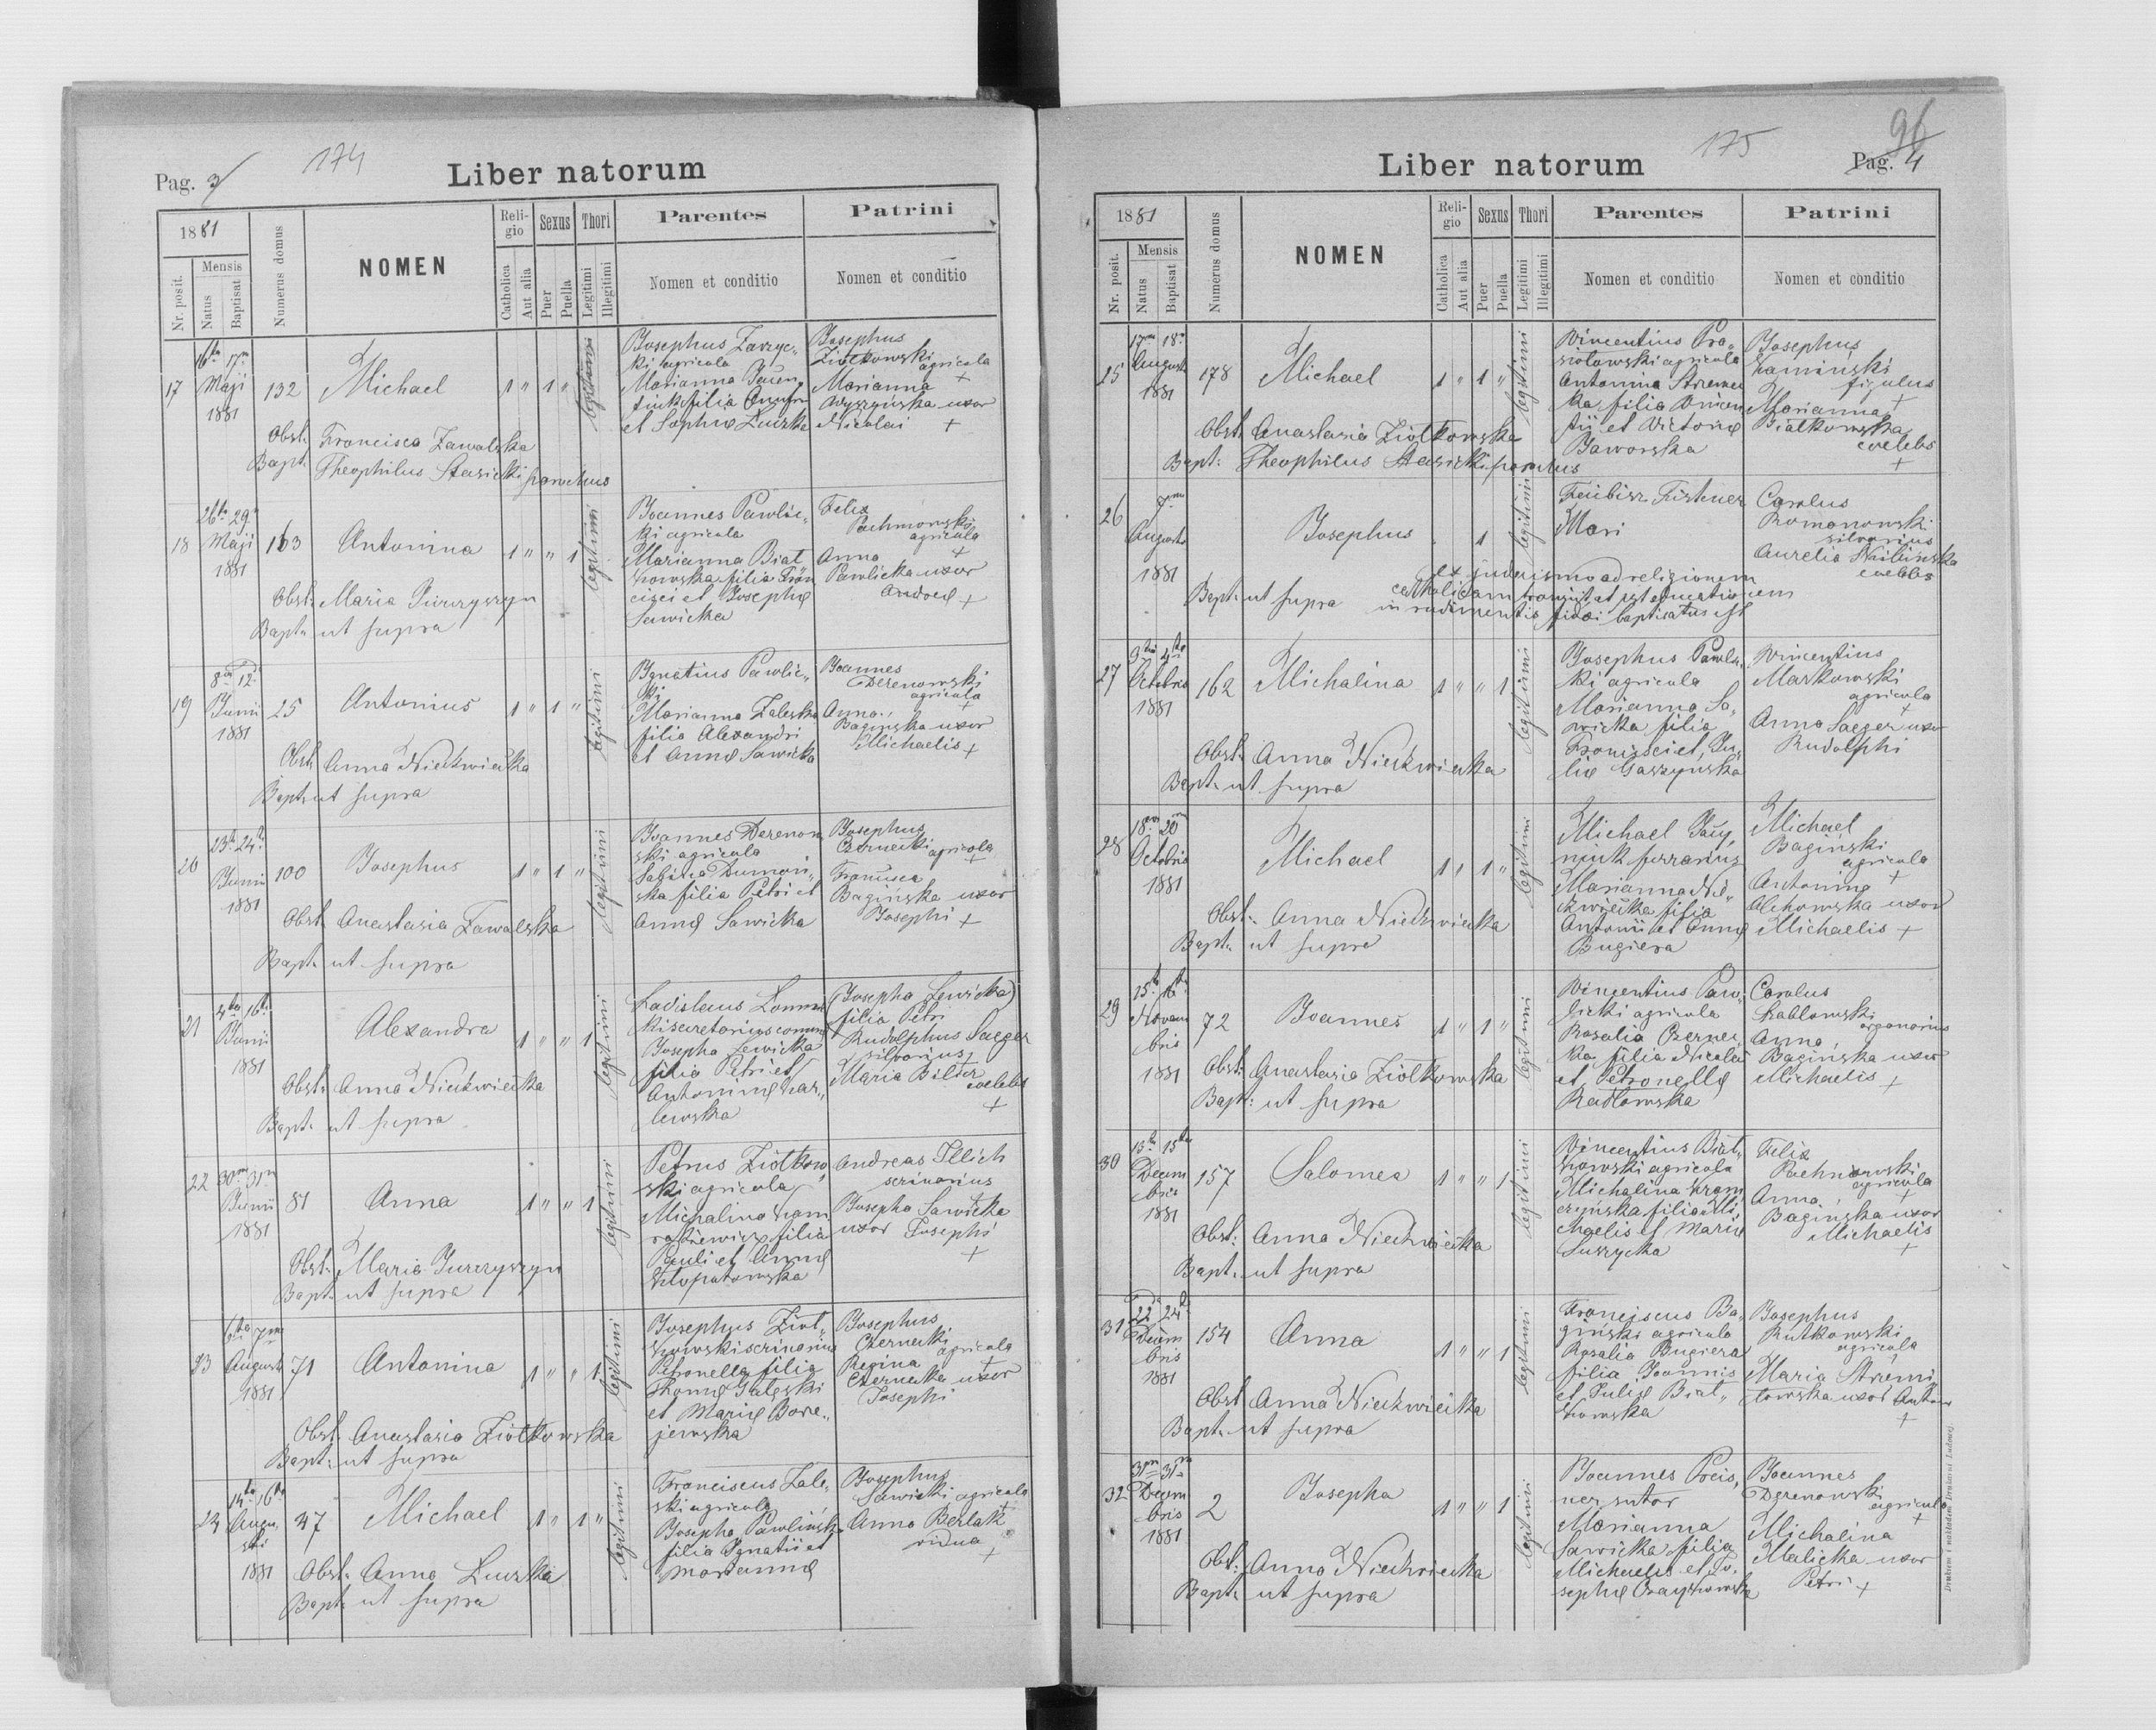 Pag. 3
174
Liber natorum
1881
Nr. posit.
Mensis
Natus
Baptisat
Numerus domus
NOMEN
Religio
Catholica
Aut alia
Sexus
Puer
Puella
Thori
Legitimi
Illegitimi
Parentes
Nomen et conditio
Patrini
Nomen et conditio
17
16ta 17ma
Maji
1881
132
Michael
1 " 1 "
legitimi
Josephus Zarzyc„
ki agricola
Marianna
filia
et Sophiæ Luczka
Josephus
Ziółkowski agricola
+
Marianna
Wyszyńska uxor
Nicolai +
Obst. Francisca Zawalska
Bapt. Theophilus Stasicki parochus
18
26ta 29
Maji
1881
163
Antonina
1 " " 1
legitimi
Joannes Pawlic„
ki agricola
Marianna Biał
kowska filia Fran
cisci et Josephæ
Sawicka
Felix
Pachnowski
agricola
+
Anna
Pawlicka uxor
+
Obst: Maria Jurczyszyn
Bapt. ut supra
19
8va 12
Junii
1881
25
Antonius
1 " 1 "
legitimi
Ignatius Pawlic„
ki
Marianna Zaleska
filia Alexandri
et Annæ Sawicka
Joannes
Derenowski
agricola
+
Anna
Bagińska uxor
Michaelis +
Obst. Anna Niedzwiecka
Bapt. ut supra
20
23a 24ta
Junii
1881
100
Josephus
1 " 1 "
legitimi
Joannes Derenow
ski agricola
Sabina Dumań„
ska filia Petri et
Annæ Sawicka
Josephus
Czernecki agricola
+
Francisca
Bagińska uxor
Josephi +
Obst. Anastasia Zawalska
Bapt. ut supra
21
4ta 16ta
Junii
1881
Alexandra
1 " " 1
legitimi
Ladislaus
Josepha Lewicka
filia Petri et
Antoninæ Kar„
lewska
(Josepha Lewicka)
filia Petri
Rudolphus Saeger
silvarius +
Maria
coelebs
+
Obst: Anna Niedzwiecka
Bapt. ut supra
22
30ma 31ma
Junii
1881
81
Anna
1 " " 1
legitimi
Petrus Ziółkow„
ski agricola
Michalina
filia
Pauli et Annæ
Kłopatowska
Andreas Illich
scrinarius
Josepha Sawicka
uxor Josephi
+
Obst. Maria Jurczyszyn
Bapt. ut supra
23
6ta 7ma
Augusti
1881
71
Antonina
1 " " 1
legitimi
Josephus Ziół„
kowski scrinarius
Petronella filia
Thomæ Zaleski
et Mariæ
jewska
Josephus
Czernecki agricola
+
Regina
Czernecka uxor
Josephi
Obst. Anastasia Ziółkowska
Bapt. ut supra
24
14ta 16ta
Augu„
sti
1881
47
Michael
1 " 1 "
legitimi
Franciscus Zale„
ski agricola
Josepha Pawlińska
filia Ignatii et
Mariannæ
Josephus
Sawicki agricola
+
Anna Berlak
vidua
+
Obst. Anna Luczka
Bapt. ut supra
96
175
Liber natorum
Pag. 4
1881
Nr. posit.
Mensis
Natus
Baptisat
Numerus domus
NOMEN
Religio
Catholica
Aut alia
Sexus
Puer
Puella
Thori
Legitimi
Illegitimi
Parentes
Nomen et conditio
Patrini
Nomen et conditio
25
17ma 18a
Augusti
1881
178
Michael
1 " 1 "
legitimi
Vincentius Pra„
siołowski agricola
Antonina
filia Vincen
tii et Victoriæ
Jaworska
Josephus
Kamiński
figulus
+
Marianna
Białkowska
coelebs
+
Obst. Anastasia Ziółkowska
Bapt: Theophilus Stasicki parochus
26
7ma
Augusti
1881
Josephus
1
legitimi
Mari
Carolus
Romanowski
silvarius
Aurelia
coelebs
ex judaismo ad religionem
catholicam transiit et
in rudimentis fidei baptisatus est
Bapt. ut supra
27
3tia 4ta
Octobris
1881
162
Michalina
1 " " 1
legitimi
Josephus Pawlic„
ki agricola
Marianna Sa„
wicka filia
Francisci et Ju„
liæ Gaszyńska
Vincentius
Markowski
agricola
+
Anna Saeger uxor
Rudolphi
Obst. Anna Niedzwiecka
Bapt. ut supra
28
18va 20ma
Octobris
1881
Michael
1 " 1 "
legitimi
Michael
ferrarius
Marianna Nied„
zwiecka filia
Antonii et Annæ
Bugiera
Michael
Bagiński
agricola
+
Antonina
Olchowska uxor
Michaelis +
Obst: Anna Niedzwiecka
Bapt. ut supra
29
15ta
Novem
bris
1881
72
Joannes
1 " 1 "
legitimi
Vincentius Paw„
licki agricola
Rosalia Czernec
ka filia Nicolai
et Petronellæ
Radłowska
Carolus
organarius
Anna
Bagińska uxor
Michaelis +
Obst: Anastasia Ziółkowska
Bapt: ut supra
30
13ta 15ta
Decem
bris
1881
157
Salomea
1 " " 1
legitimi
Vincentius Biał„
kowski agricola
Michalina Kram
czyńska filia Mi„
chaelis et Mariæ
Suszycka
Felix
Pachnowski
agricola
+
Anna
Bagińska uxor
Michaelis
+
Obst: Anna Niedzwiecka
Bapt. ut supra
31
22da 24ta
Decem
bris
1881
154
Anna
1 " " 1
legitimi
Franciscus Ba„
giński agricola
Rosalia Bugiera
filia Joannis
et Juliæ Biał„
kowska
Josephus
Rutkowski
agricola
Maria Strzemi„
łowska uxor Antonii
+
Obst. Anna Niedzwiecka
Bapt. ut supra
32
31ma 31ma
Decem
bris
1881
2
Josepha
1 " " 1
legitimi
Joannes Preis„
ner sutor
Marianna
Sawicka filia
Michaelis et Jo„
sephæ Czaykowska
Joannes
Derenowski
agricola
+
Michalina
Malicka uxor
Petri +
Obst: Anna Niedzwiecka
Bapt. ut supra
Drukiem i nakładem Drukarni Ludowej